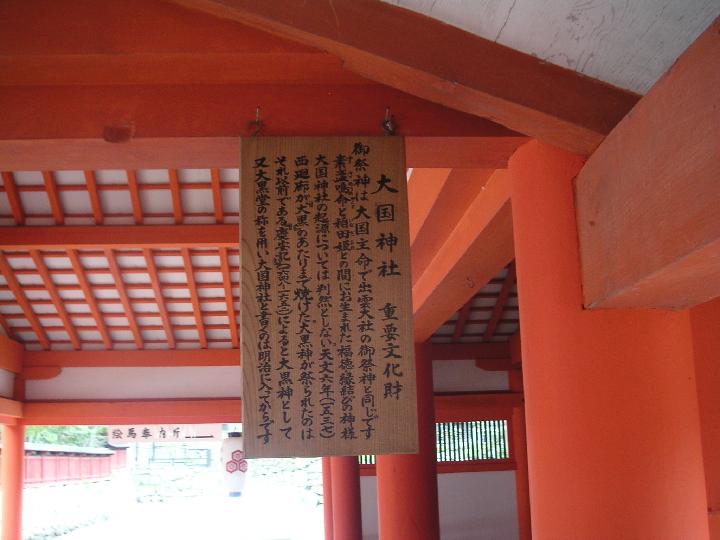 大国神社 重要文化財
御祭神は大国主命で出雲大社の御祭神と同じです
素盞鳴命と稲田姫との間にお生まれた福徳縁結びの神様
大国神社の起源については判然としない天文六年(一五三七)
西廻廊が大黒のあたりまで焼けた大黒神が祭られたのは
それ以前である慶安記によると大黒神として
又大黒堂の称を用い大国神社と書くのは明治に入ってからです
絵馬奉内所